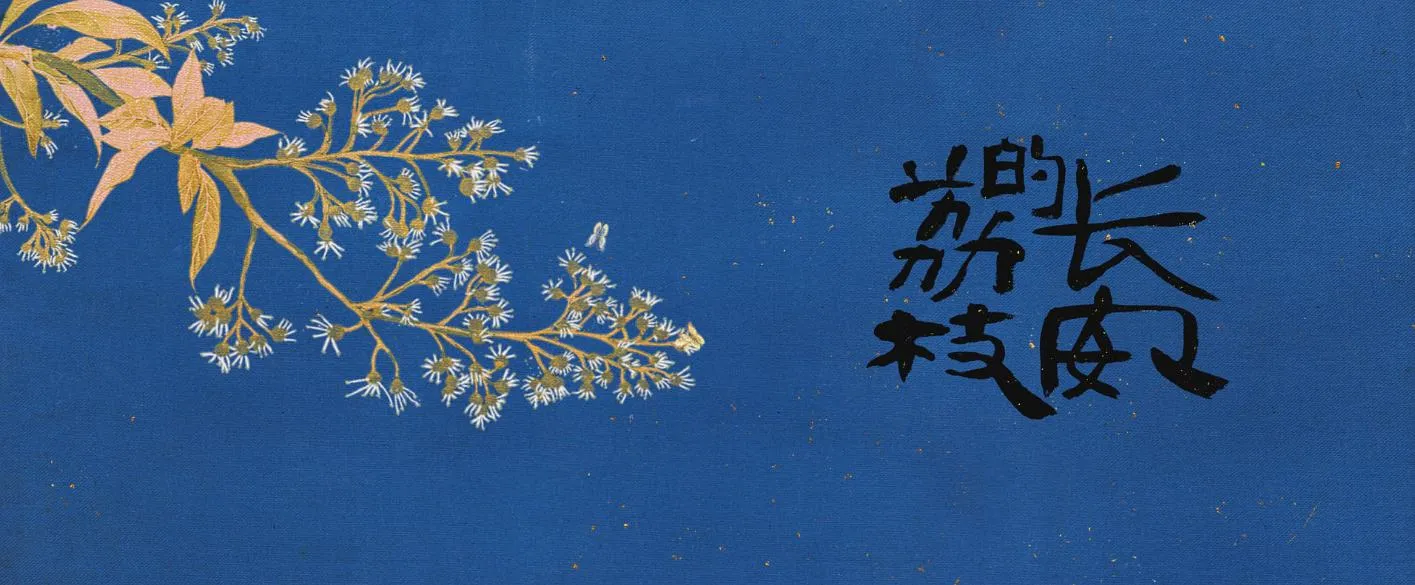 长安
的
荔枝